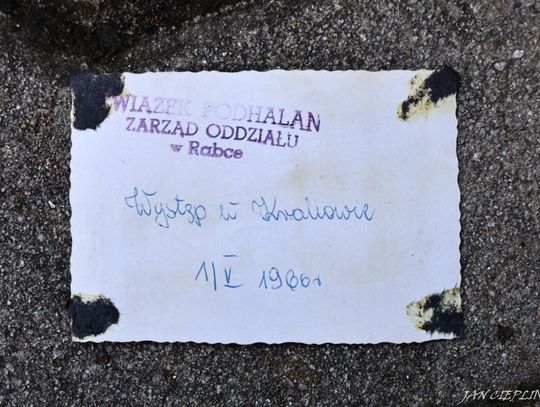 WIAZEK PODHALAN
ZARZĄD ODDZIAŁU
w Rabce
Występ w Krakowie
1/V 1966r
JAN CIEPLIŃ